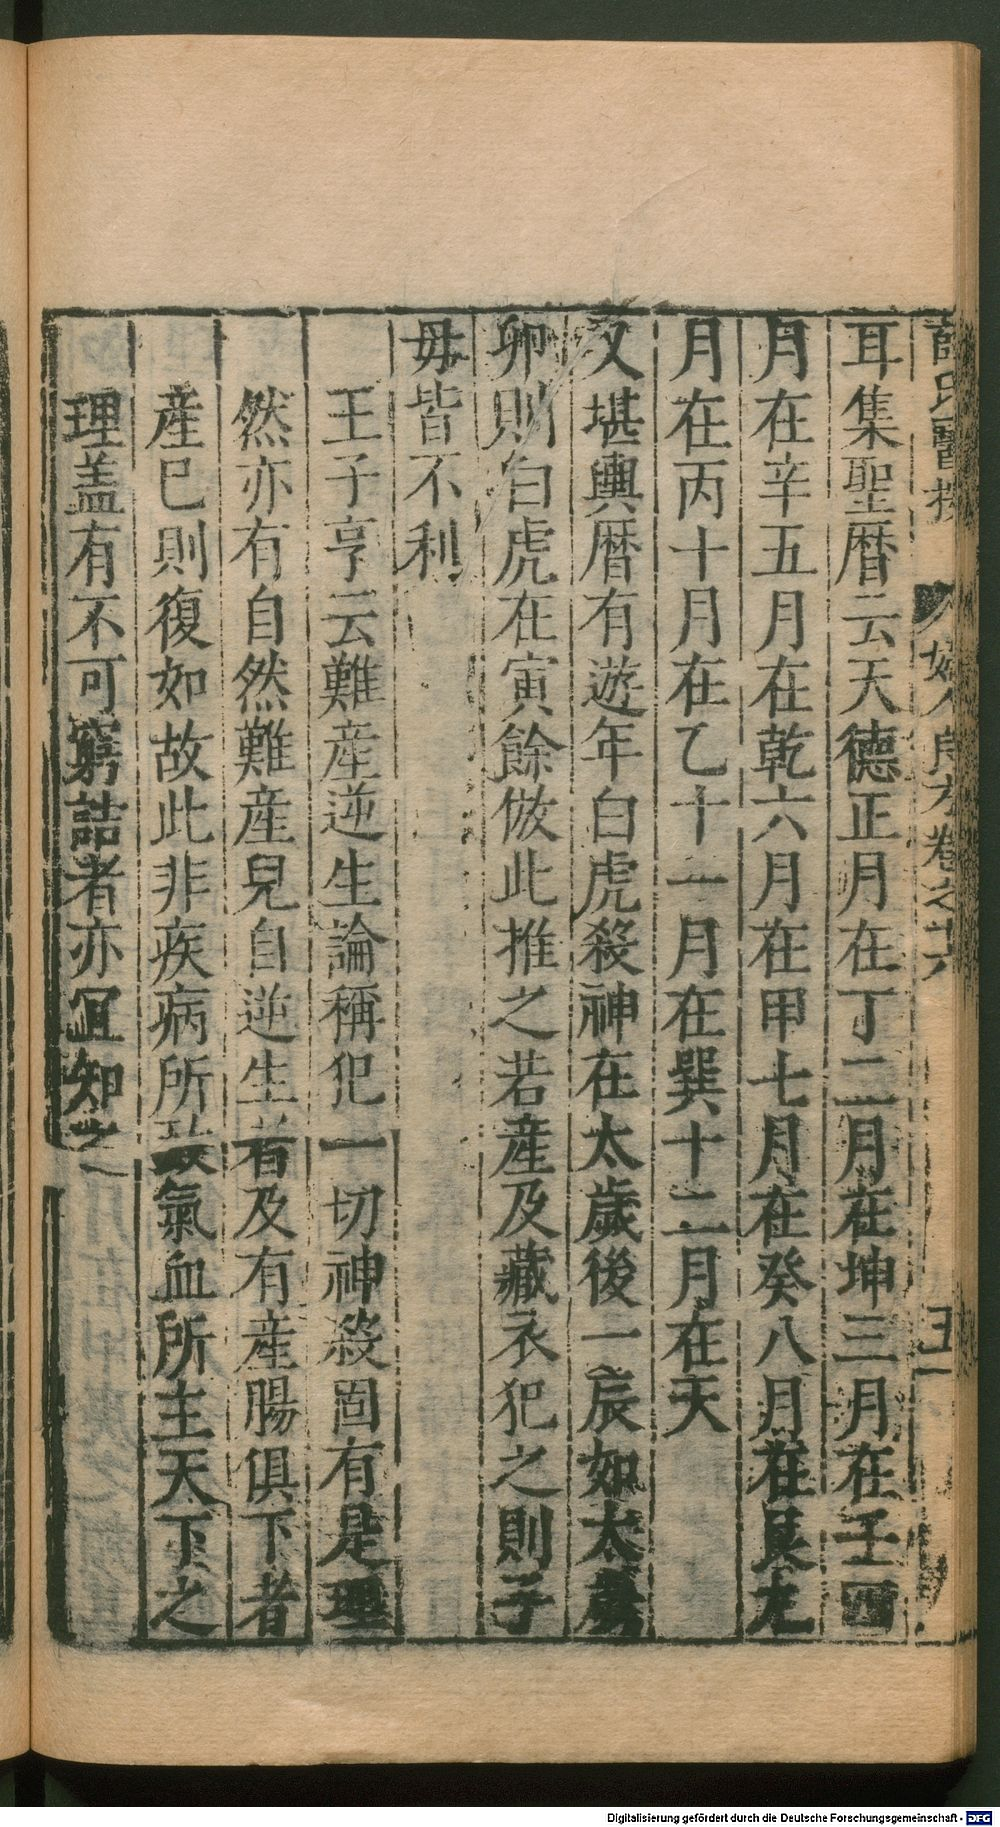 薛氏醫按 婦人良方卷之十六 五
耳集聖暦云天德正月在丁二月在坤三月在壬四
月在辛五月在乾六月在甲七月在癸八月在艮九
月在丙十月在乙十一月在巽十二月在天
又堪輿暦有遊年白虎殺神在太歲後一辰如太歲
卯則白虎在寅餘倣此推之若產及藏衣犯之則子
毋皆不利
王子亨云難産逆生論稱犯一切神殺固有是理
然亦有自然難産兒自逆生者及有産腸俱下者
産已則復如故此非疾病所致氣血所主天下之
理盖有不可窮詰者亦冝知之
Digitalisierung gefördert durch die Deutsche Forschungsgemeinschaft - DFG